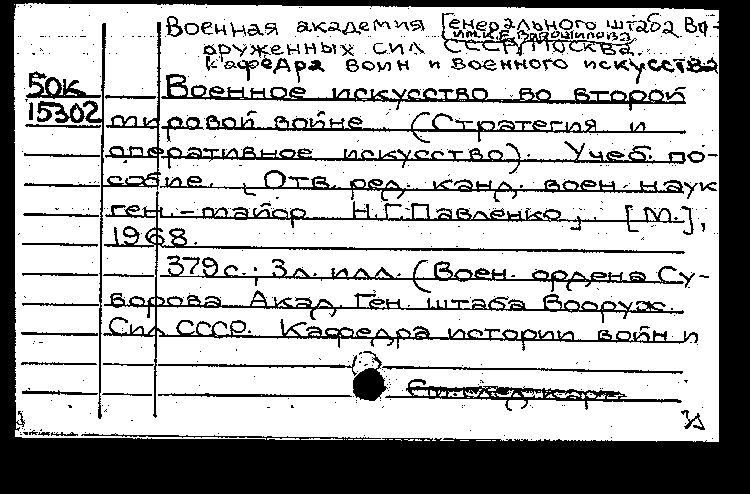 Военная академия Генерального штаба Во-
им. К.Е. Ворошилова
оруженных сил СССР, Москва.
Кафедра войн и военного искусства
50К
15302
Военное искусство во второй
мировой войне. (Стратегия и
оперативное искусство). Учеб. по-
собие. [Отв. ред. канд. воен. наук
ген.-майор Н.Г. Павленко]. [М.],
1968.
379 с.; 3 л. илл. (Воен. ордена Су-
ворова Акад. Ген. штаба Вооруж.
Сил СССР. Кафедра истории войн и
См. след. карт.